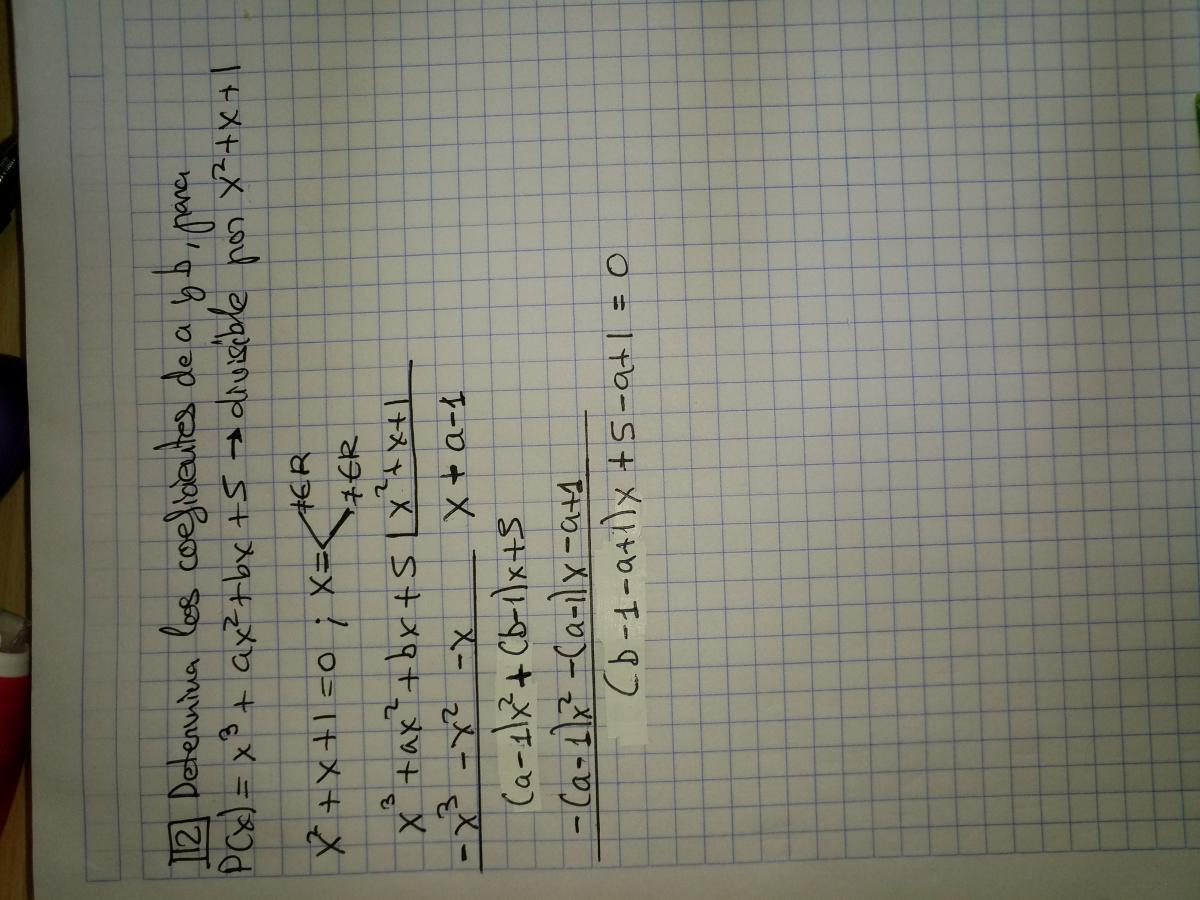 12 Determina los coeficientes de a y b, para
P(x) = x³ + ax² + bx + 5 → divisible por x² + x + 1
x² + x + 1 = 0 ; x = < ∉R ∉R
x³ + ax² + bx + 5 | x² + x + 1
-x³ - x² - x x + a - 1
(a-1)x² + (b-1)x + 5
-(a-1)x² - (a-1)x - a+1
(b-1-a+1)x + 5 - a+1 = 0